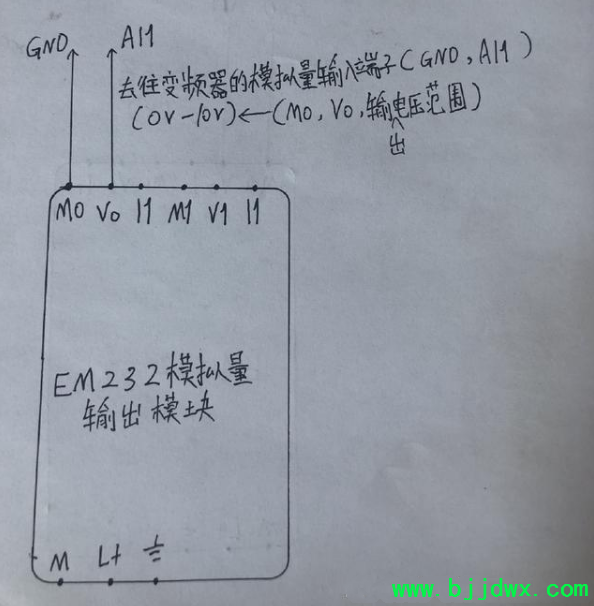 GND AI1
去往变频器的模拟量输入端子(GND,AI1)
(0V-10V)←(M0,V0,输出电压范围)
M0 V0 I1 M1 V1 I1
EM232模拟量
输出模块
M L+
www.bjjdwx.com